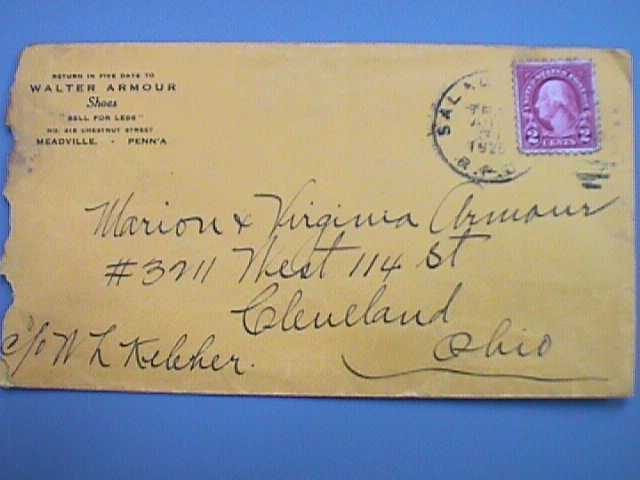 RETURN IN FIVE DAYS TO
WALTER ARMOUR
Shoes
"SELL FOR LESS"
NO. 218 CHESTNUT STREET
MEADVILLE, - PENN'A
UNITED STATES POSTAGE
2 CENTS 2
SALA
192
R.P.O.
Marion & Virginia Armour
#3211 West 114 St
Cleveland
Ohio
c/o W L Keleher.